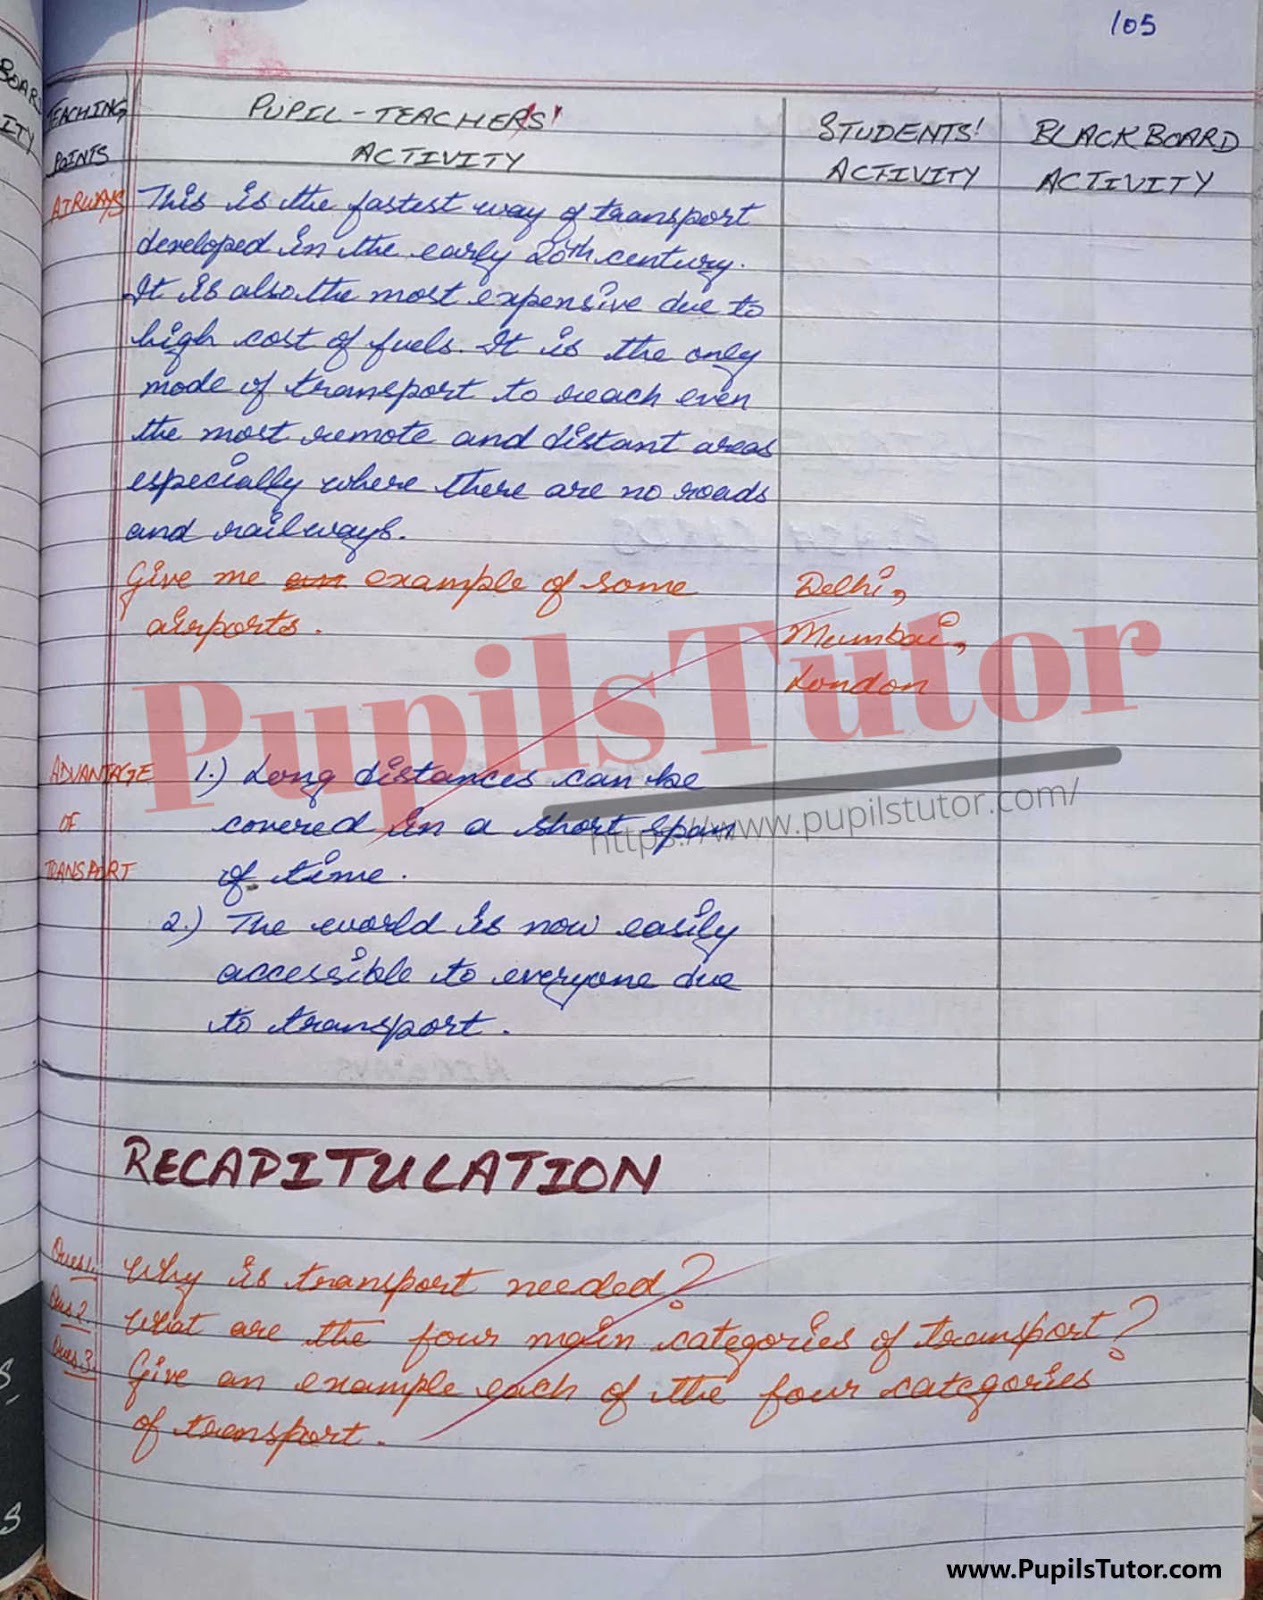 105
BOARD
ITY
TEACHING POINTS
PUPIL-TEACHER'S ACTIVITY
STUDENTS' ACTIVITY
BLACKBOARD ACTIVITY
AIRWAYS
This is the fastest way of transport
developed in the early 20th century.
It is also the most expensive due to
high cost of fuels. It is the only
mode of transport to reach even
the most remote and distant areas
especially where there are no roads
and railways.
Give me an example of some
airports.
Delhi,
Mumbai,
London
PupilsTutor
https://www.pupilstutor.com/
ADVANTAGE
OF
TRANSPORT
1.) Long distances can be
covered in a short span
of time.
2.) The world is now easily
accessible to everyone due
to transport.
RECAPITULATION
Ques1. Why is transport needed?
Ques2. What are the four main categories of transport?
Ques3. Give an example each of the four categories
of transport.
www.PupilsTutor.com